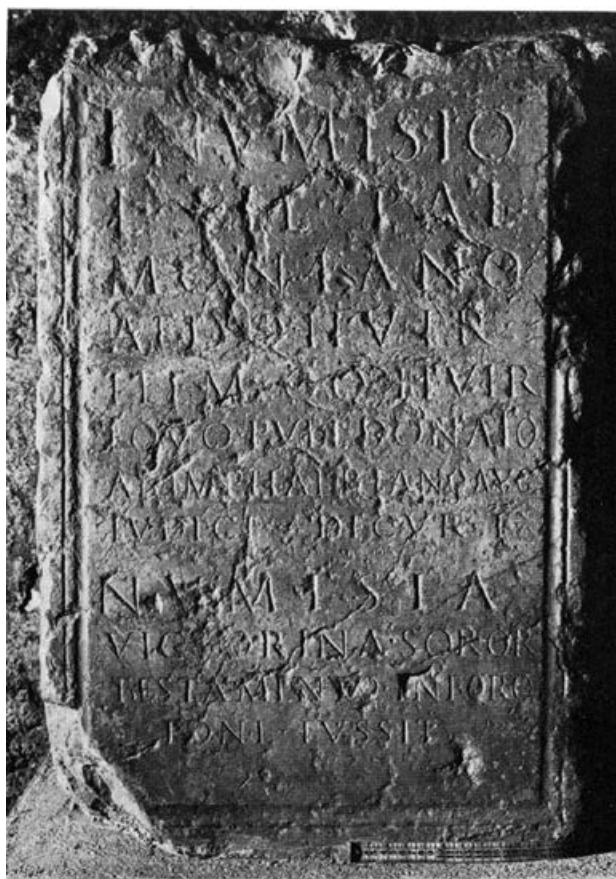 L NVMISIO
L FIL PAL
MONTANO
AED Q IIVIR
ITEM QQ IIVIR
EQVO PVBL DONATO
AB IMP HADRIANO AVG
IVDICI DECVR I
NVMISIA
VICTORINA·SOROR
TESTAMENTO IN FORO
PONI IVSSIT